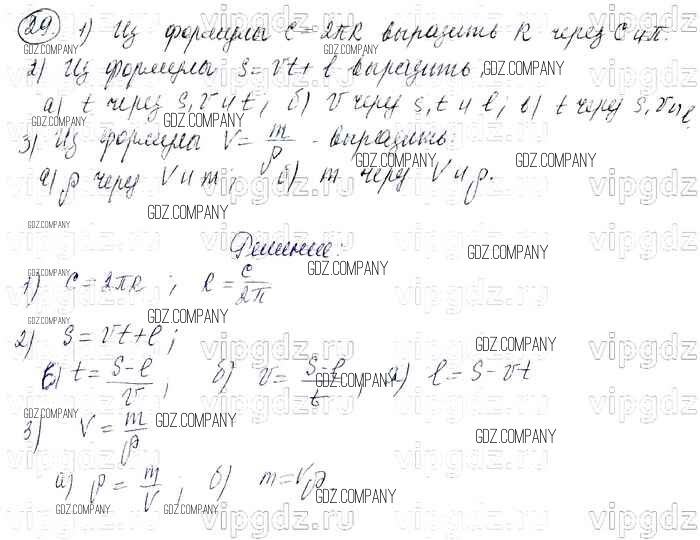 29. 1) Из формулы C = 2πR выразить R через C и π.
2) Из формулы s = vt + l выразить:
а) t через s, v и t; б) v через s, t и l; в) t через s, v и l
3) Из формулы V = m/ρ - выразить:
а) ρ через V и m; б) m через V и ρ.
Решение:
1) C = 2πR; R = C/2π
2) s = vt + l;
в) t = s-l/v; б) v = s-l/t; а) l = s - vt
3) V = m/ρ
а) ρ = m/V; б) m = Vρ
GDZ.COMPANY
vipgdz.ru